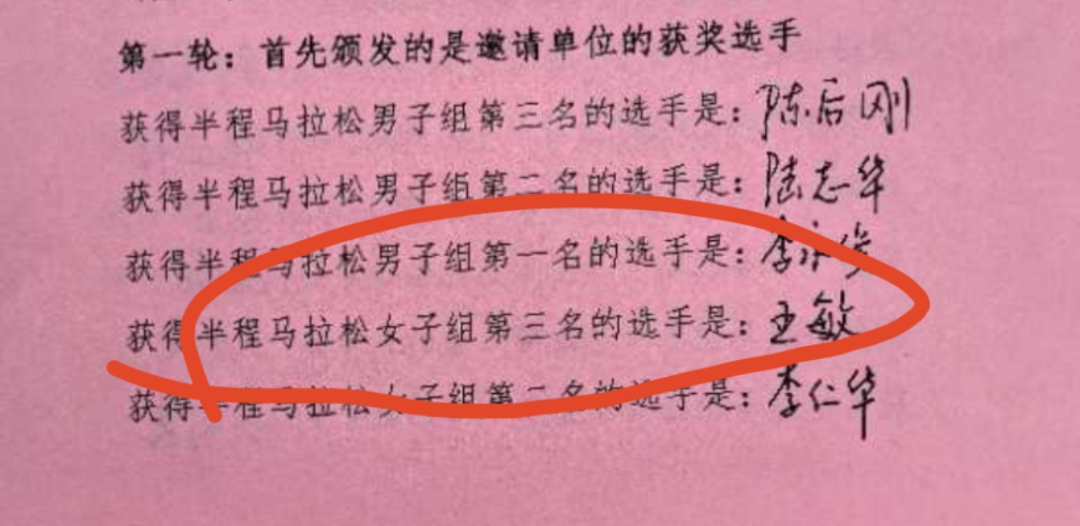 第一轮：首先颁发的是邀请单位的获奖选手
获得半程马拉松男子组第三名的选手是：陈后刚
获得半程马拉松男子组第二名的选手是：陆志华
获得半程马拉松男子组第一名的选手是：李
获得半程马拉松女子组第三名的选手是：王敏
获得半程马拉松女子组第二名的选手是：李仁华